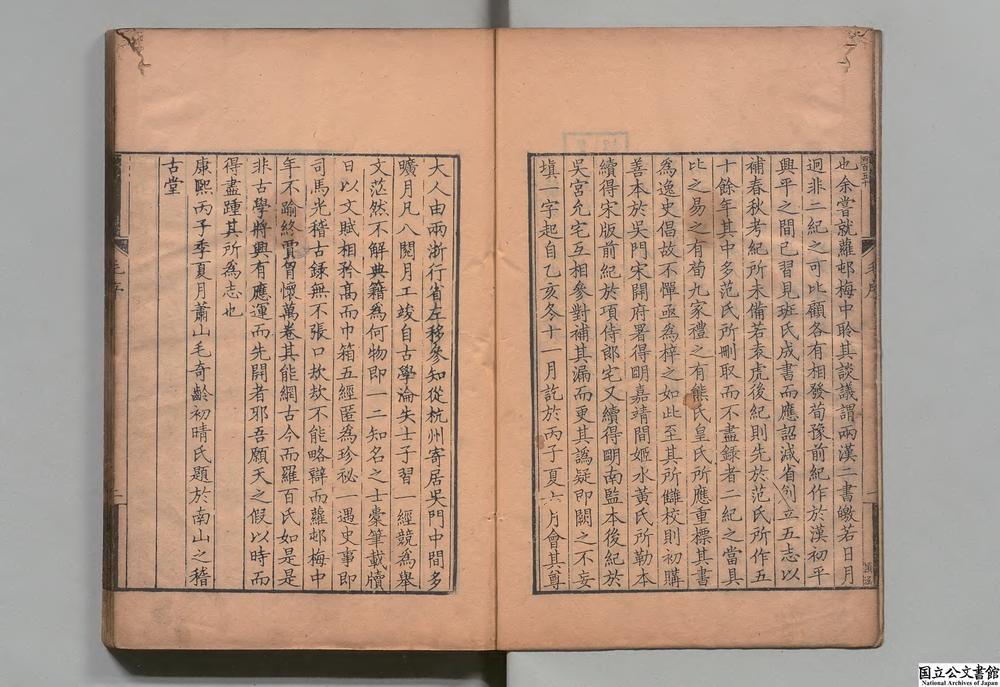 也余嘗就蘿邨梅中聆其談議謂兩漢二書皦若日月
迥非二紀之可比顧各有相發荀豫前紀作於漢初平
興平之間已習見班氏成書而應詔減省別立五志以
補春秋考紀所未備若袁虎後紀則先於范氏所作五
十餘年其中多范氏所刪取而不盡錄者二紀之當具
比之易之有荀九家禮之有熊氏皇氏所應重標其書
為逸史倡故不憚亟為梓之如此至其所讎校則初購
善本於吳門宋開府署得眀嘉靖間姬水黃氏所勒本
續得宋版前紀於項侍郎宅又續得眀南監本後紀於
吳宮允宅互相參對補其漏而更其譌疑即闕之不妄
填一字起自乙亥冬十一月訖於丙子夏六月會其尊
大人由兩浙行省左移參知從杭州寄居吳門中間多
曠月凡八閱月工竣自古學淪失士子習一經競為舉
文茫然不解典籍為何物即一二知名之士槖筆載牘
日以文賦相矜高而巾箱五經匿為珍祕一遇史事即
司馬光稽古錄無不張口欬欬不能略辯而蘿邨梅中
年不踰終賈胷懷萬卷其能網古今而羅百氏如是是
非古學將興有應運而先開者耶吾願天之假以時而
得盡踵其所為志也
康熙丙子季夏月蕭山毛奇齡初晴氏題於南山之稽
古堂
毛序
二
毛序
国立公文書館
National Archives of Japan